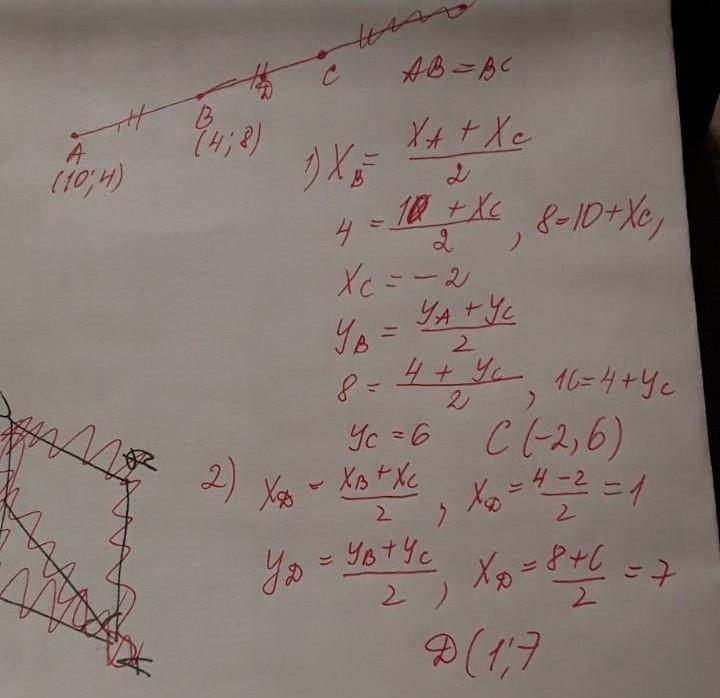 A
(10; 4)
B
(4; 8)
D
C
AB = BC
1) X_B = (X_A + X_C)/2
4 = (10 + X_C)/2, 8 = 10 + X_C,
X_C = -2
y_B = (y_A + y_C)/2
8 = (4 + y_C)/2, 16 = 4 + y_C
y_C = 6 C (-2, 6)
2) X_D = (X_B + X_C)/2, X_D = (4 - 2)/2 = 1
y_D = (y_B + y_C)/2, X_D = (8 + 6)/2 = 7
D (1; 7